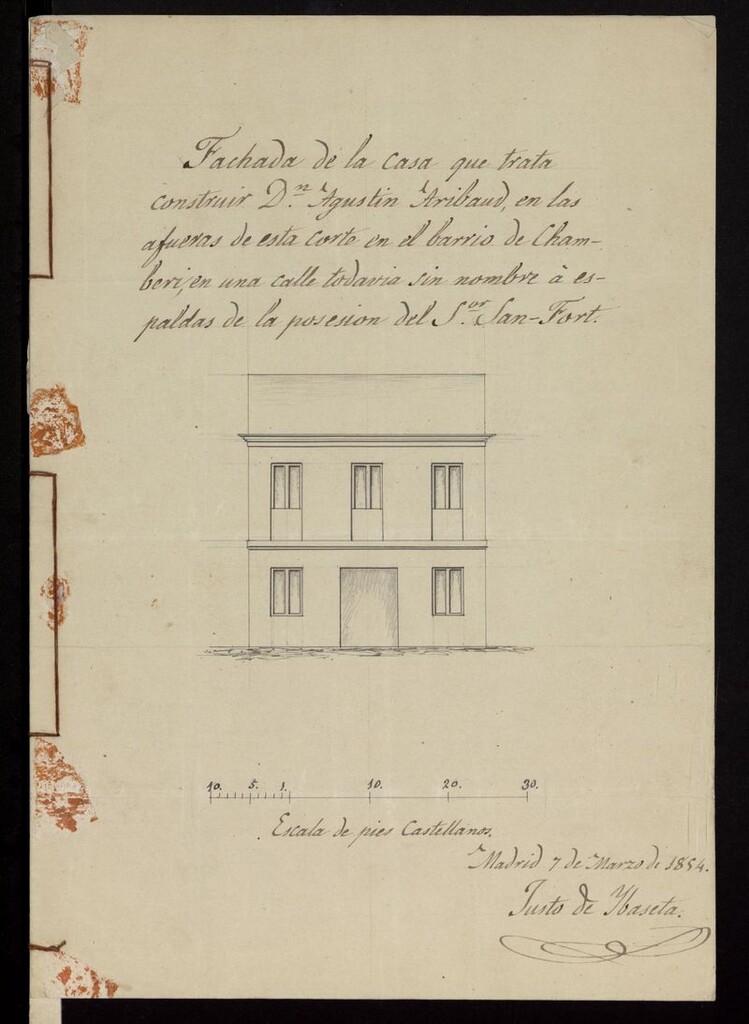 Fachada de la casa que trata
construir D.ⁿ Agustin Aribaud, en las
afueras de esta corte en el barrio de Cham-
beri, en una calle todavia sin nombre à es-
paldas de la posesion del S.ᵒʳ San-Fort.
10. 5. 1. 10. 20. 30.
Escala de pies Castellanos.
Madrid 7 de Marzo de 1854.
Justo de Ybaseta.